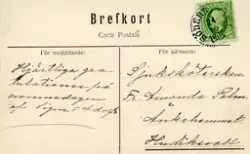 Brefkort
Carte Postale
För meddelande:
För adressen:
Hjärtliga gra
tulationer på
namnsdagen
af Signe o Adolf
Sjuksköterskan
Fr. Amanda Palm
Ankehemmet
Hudiksvall